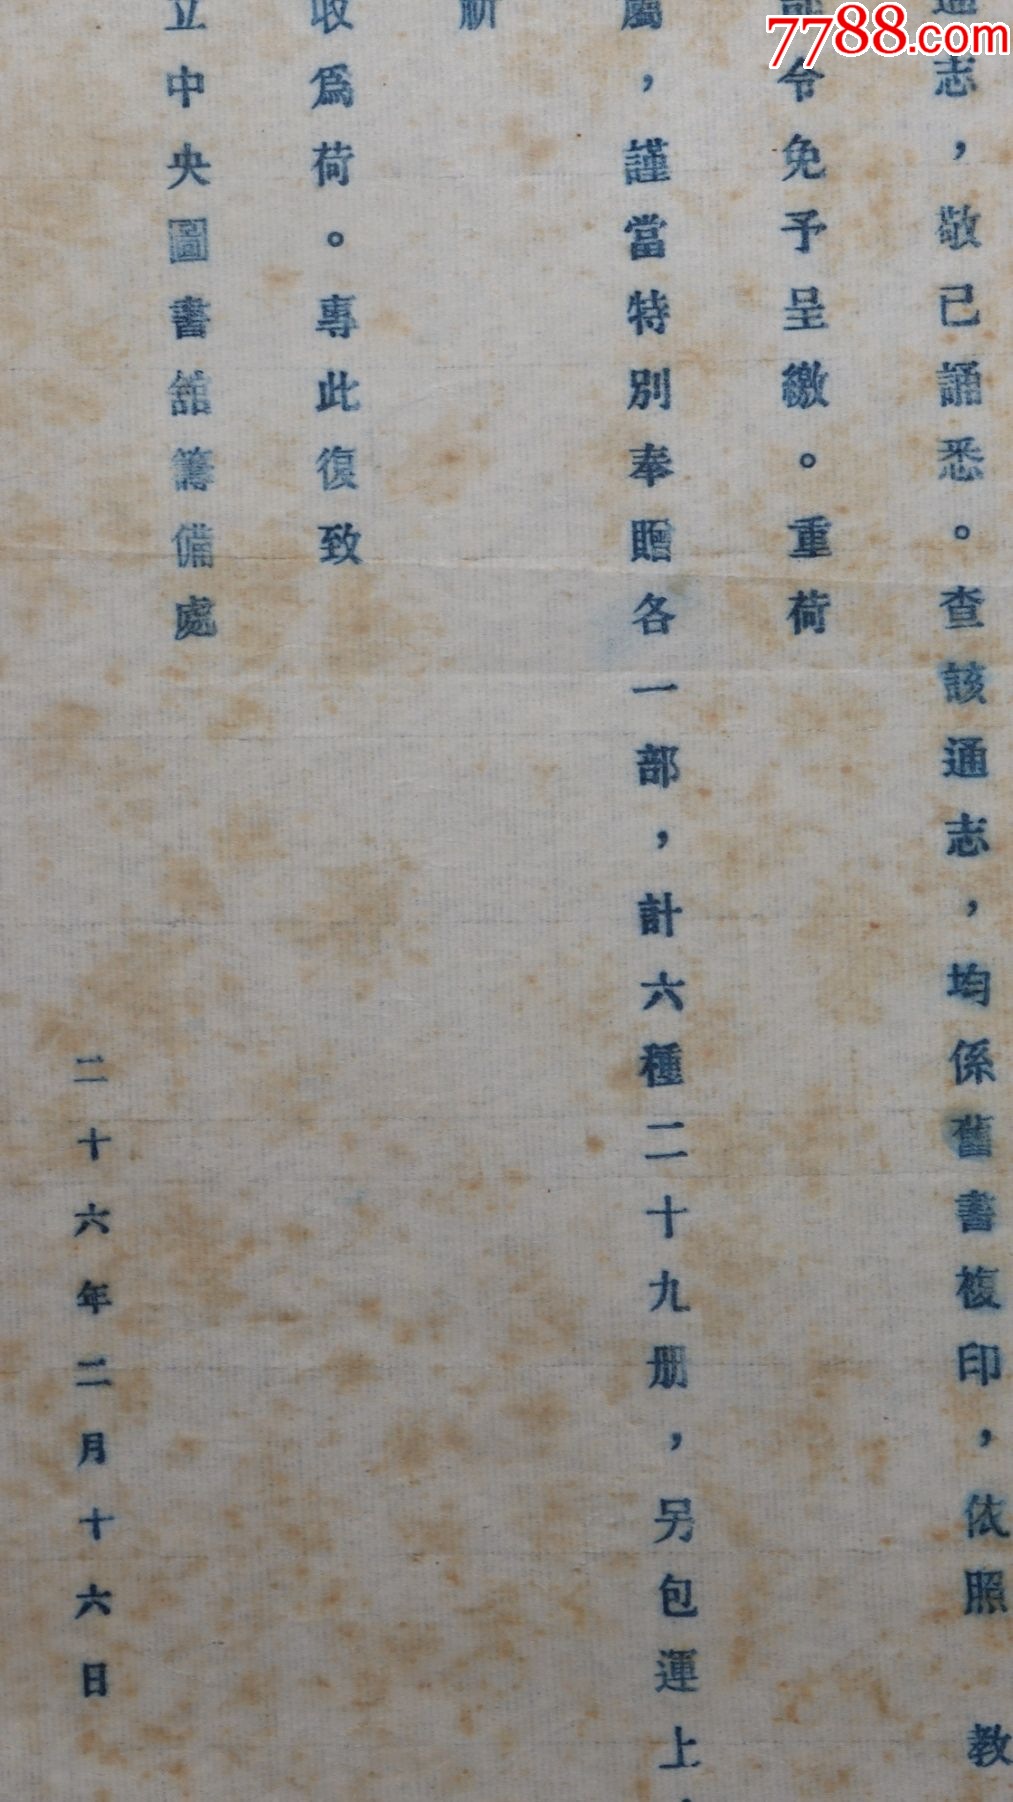 7788.com
通志，敬已誦悉。查該通志，均係舊書複印，依照 教
部令免予呈繳。重荷
屬，謹當特別奉贈各一部，計六種二十九册，另包運上，
收為荷。專此復致
立中央圖書館籌備處
二十六年二月十六日